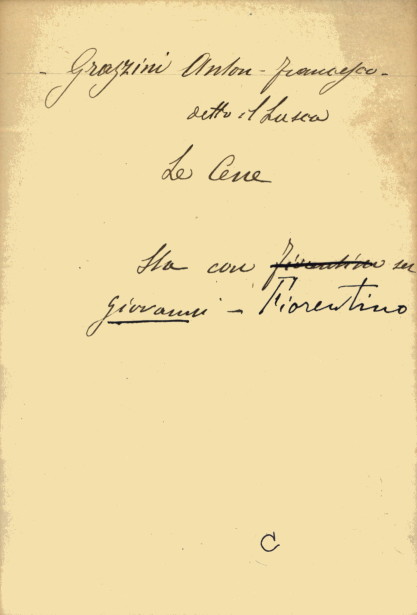 - Grazzini Anton-Francesco -
detto il Lasca
Le Cene
Sta con Fiorentino ser
Giovanni - Fiorentino
C